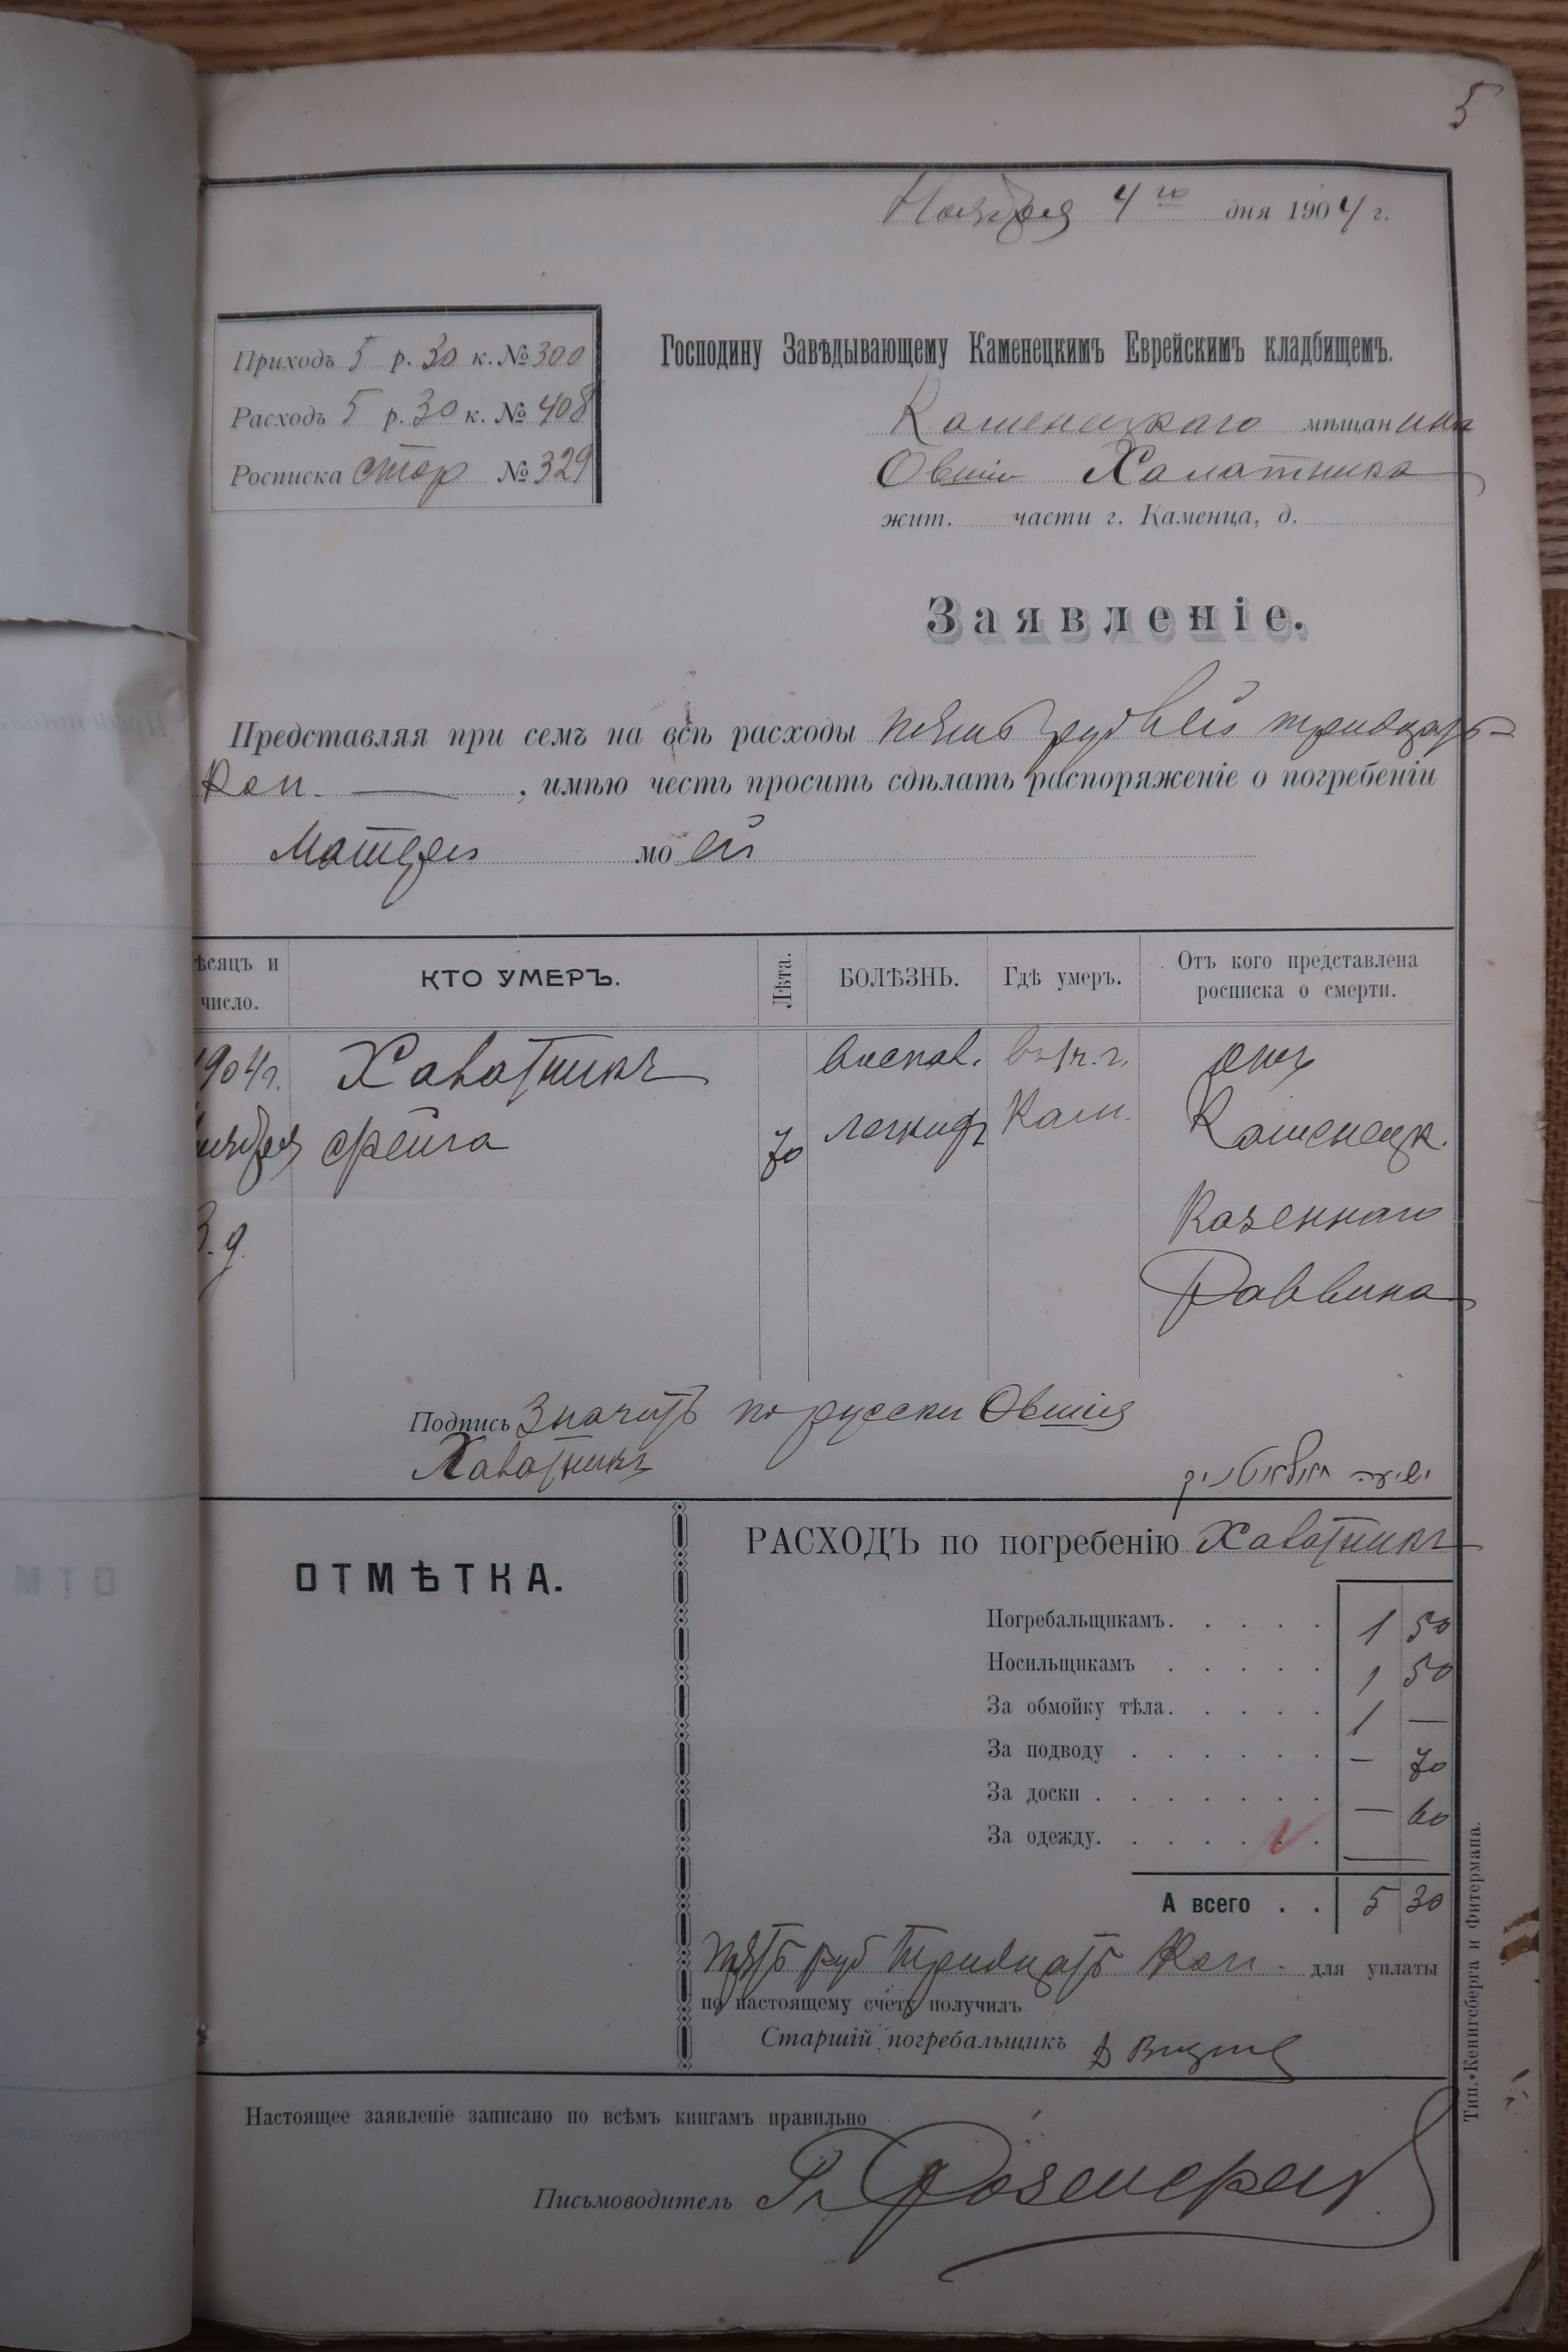 5
Ноября 4го дня 1904 г.
Приходъ 5 р. 30 к. № 300
Расходъ 5 р. 30 к. № 408
Росписка стор № 329
Господину Завѣдывающему Каменецкимъ Еврейскимъ кладбищемъ.
Каменецкаго мѣщанина
Овшiи Халатника
жит. части г. Каменца, д.
Заявленіе.
Представляя при семъ на всѣ расходы пять рублей тридцать
коп. , имѣю честь просить сдѣлать распоряженіе о погребеніи
Матери моей
ѣсяцъ и число.
КТО УМЕРЪ.
Лѣта.
БОЛѢЗНЬ.
Гдѣ умеръ.
Отъ кого представлена росписка о смерти.
1904 г. Халатникъ воспал. въ г.
ноября Фейга 70 легкихъ Кам. Каменецк.
3. д. Казеннаго
Раввина
Подпись Значитъ по русски Овшiя
Халатникъ
ישעיה חאלאטניק
ОТМѢТКА.
РАСХОДЪ по погребенію Халатникъ
Погребальщикамъ. . . . . 1 50
Носильщикамъ . . . . . 1 50
За обмойку тѣла. . . . . 1 —
За подводу . . . . . . — 70
За доски . . . . . . . — 60
За одежду. . . . . . . —
А всего . . 5 30
Пять руб тридцать коп. для уплаты
по настоящему счету получилъ
Старшій погребальщикъ
Настоящее заявленіе записано по всѣмъ книгамъ правильно
Письмоводитель
Тип. Кенигсберга и Фитермана.